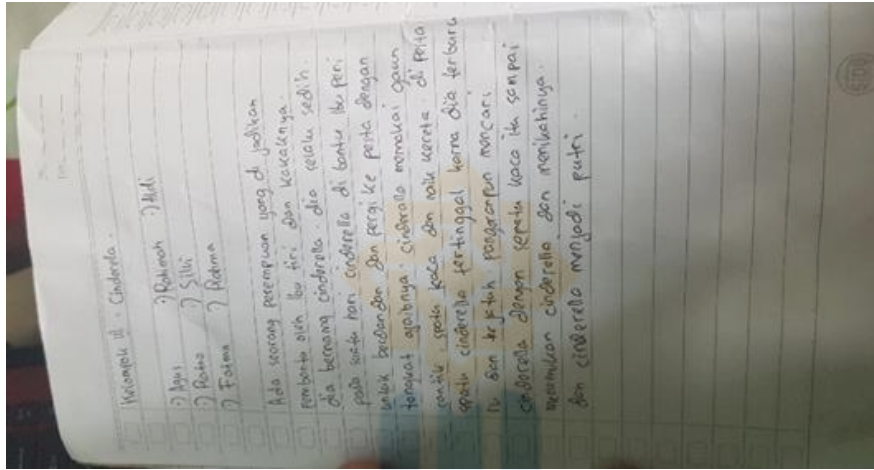 Kelompok III. Cinderela.
-) Agus -) Rahmah -) Aldi
-) Ratna -) Silvi
-) Fatma -) Rahma
Ada seorang perempuan yang di jadikan
pembantu oleh Ibu tiri dan kakaknya.
dia bernama cinderella. dia selalu sedih.
pada suatu hari cinderella di bantu Ibu peri
untuk berdandan dan pergi ke pesta dengan
tongkat ajaibnya. cinderella memakai gaun
cantik, spatu kaca dan naik kereta. di pesta
spatu cinderella tertinggal karna dia terburu
dan terjatuh pangeranpun mencari
cinderella dengan sepatu kaca itu sampai
menemukan cinderella dan menikahinya.
dan cinderella menjadi putri.